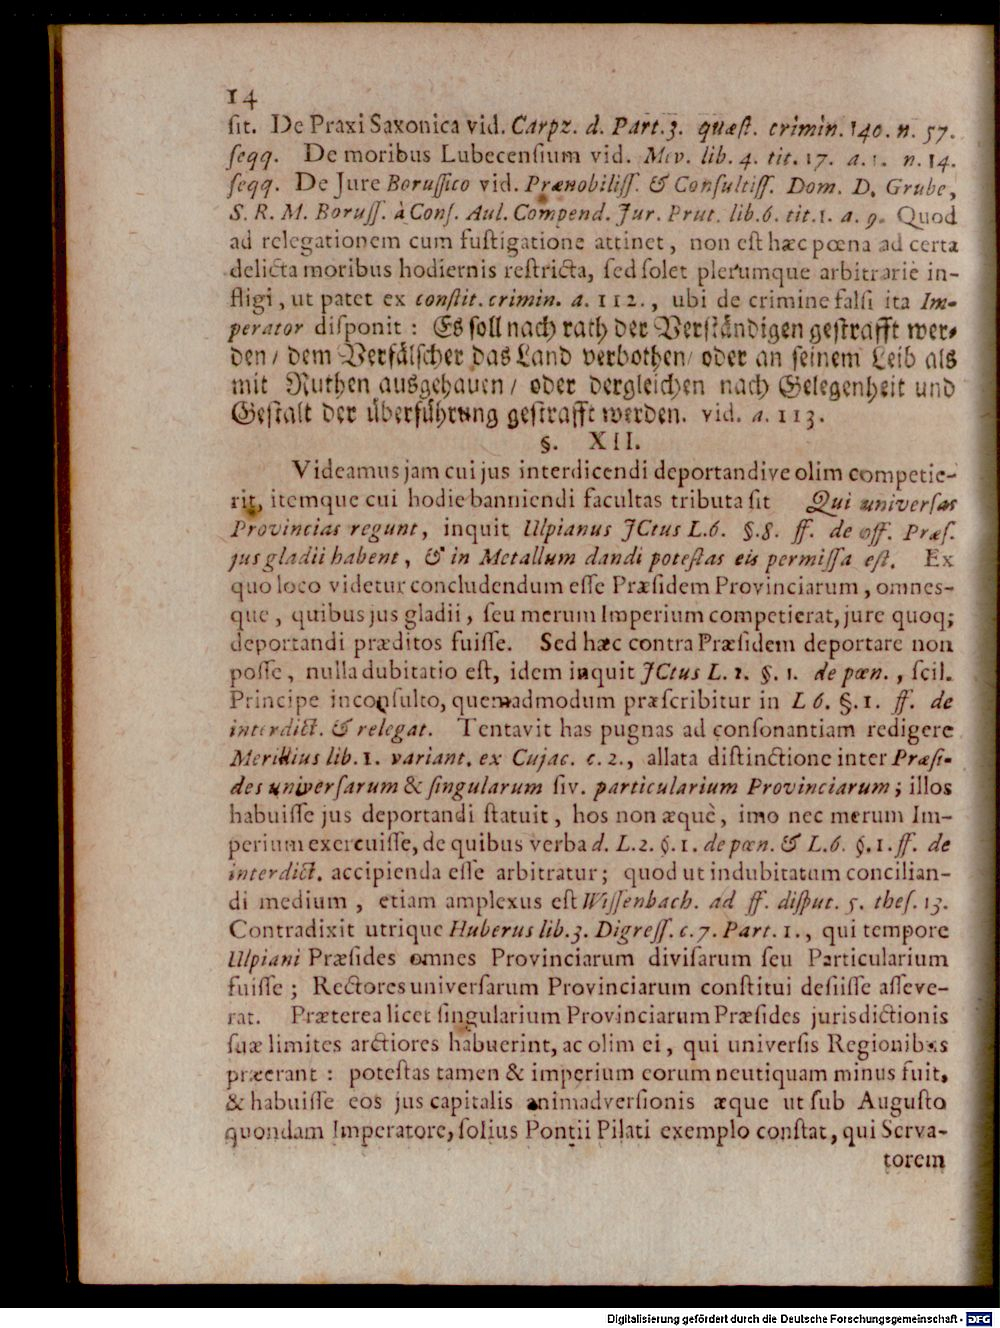 14
ſit. De Praxi Saxonica vid. Carpz. d. Part. 3. quæſt. crimin. 140. n. 57.
ſeqq. De moribus Lubecenſium vid. Mev. lib. 4. tit. 17. a. 1. n. 14.
ſeqq. De Jure Boruſſico vid. Prænobiliſſ. & Conſultiſſ. Dom. D. Grube,
S. R. M. Boruſſ. à Conſ. Aul. Compend. Jur. Prut. lib. 6. tit. 1. a. 9. Quod
ad relegationem cum fuſtigatione attinet, non eſt hæc pœna ad certa
delicta moribus hodiernis reſtricta, ſed ſolet plerumque arbitrariè in-
fligi, ut patet ex conſtit. crimin. a. 112., ubi de crimine falſi ita Im-
perator diſponit : Es ſoll nach rath der Verſtändigen geſtrafft wer-
den / dem Verfälſcher das Land verbothen / oder an ſeinem Leib als
mit Ruthen ausgehauen / oder dergleichen nach Gelegenheit und
Geſtalt der überführung geſtrafft werden. vid. a. 113.
§. XII.
Videamus jam cui jus interdicendi deportandive olim competie-
rit, itemque cui hodie banniendi facultas tributa ſit Qui univerſas
Provincias regunt, inquit Ulpianus JCtus L. 6. §. 8. ff. de off. Præſ.
jus gladii habent, & in Metallum dandi poteſtas eis permiſſa eſt. Ex
quo loco videtur concludendum eſſe Præſidem Provinciarum, omnes-
que, quibus jus gladii, ſeu merum Imperium competierat, jure quoq;
deportandi præditos fuiſſe. Sed hæc contra Præſidem deportare non
poſſe, nulla dubitatio eſt, idem inquit JCtus L. 2. §. 1. de pœn., ſcil.
Principe inconſulto, quemadmodum præſcribitur in L 6. §. 1. ff. de
interdict. & relegat. Tentavit has pugnas ad conſonantiam redigere
Merillius lib. 1. variant. ex Cujac. c. 2., allata diſtinctione inter Præſi-
des univerſarum & ſingularum ſiv. particularium Provinciarum; illos
habuiſſe jus deportandi ſtatuit, hos non æquè, imo nec merum Im-
perium exercuiſſe, de quibus verba d. L. 2. §. 1. de pœn. & L. 6. §. 1. ff. de
interdict. accipienda eſſe arbitratur; quod ut indubitatum concilian-
di medium, etiam amplexus eſt Wiſſenbach. ad ff. diſput. 5. theſ. 13.
Contradixit utrique Huberus lib. 3. Digreſſ. c. 7. Part. 1., qui tempore
Ulpiani Præſides omnes Provinciarum diviſarum ſeu Particularium
fuiſſe; Rectores univerſarum Provinciarum conſtitui deſiiſſe aſſeve-
rat. Præterea licet ſingularium Provinciarum Præſides jurisdictionis
ſuæ limites arctiores habuerint, ac olim ei, qui univerſis Regionibus
præerant : poteſtas tamen & imperium eorum neutiquam minus fuit,
& habuiſſe eos jus capitalis animadverſionis æque ut ſub Auguſto
quondam Imperatore, ſolius Pontii Pilati exemplo conſtat, qui Serva-
torem
Digitalisierung gefördert durch die Deutsche Forschungsgemeinschaft - DFG